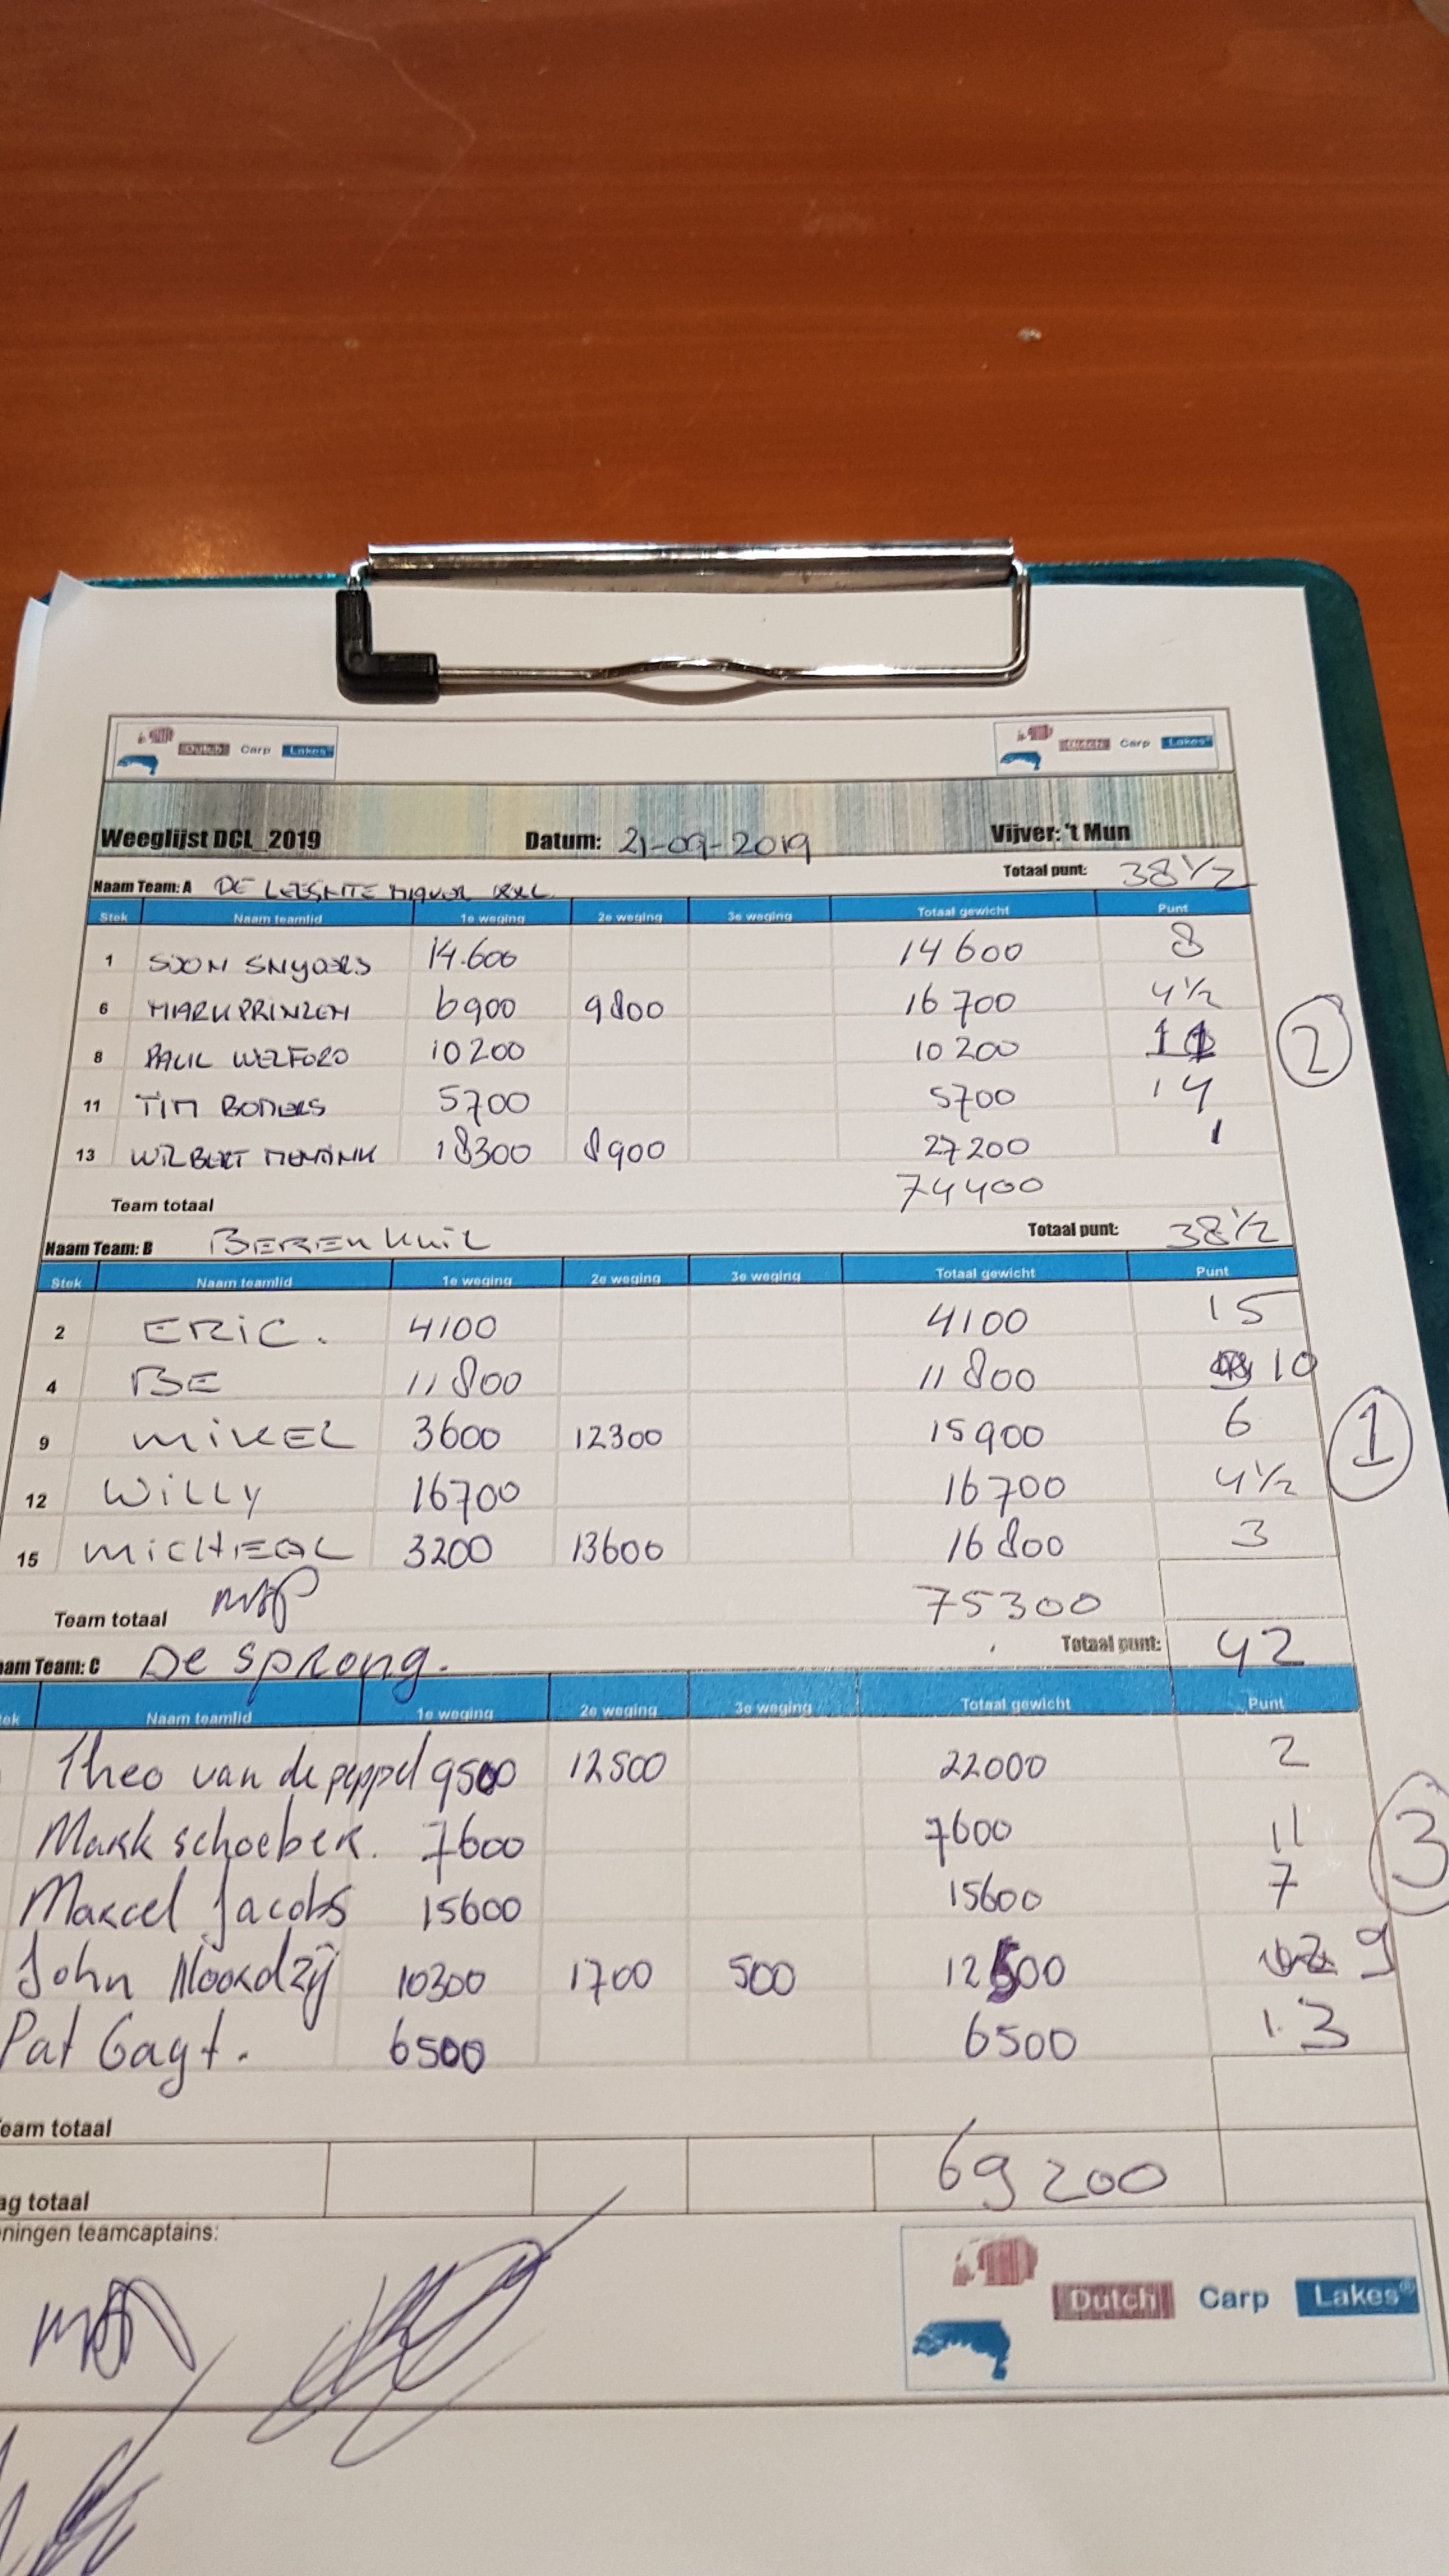 Dutch Carp Lakes® Dutch Carp Lakes®
Weeglijst DCL_2019 Datum: 21-09-2019 Vijver: 't Mun
Totaal punt: 38 1/2
Naam Team: A DE
Stek Naam teamlid 1e weging 2e weging 3e weging Totaal gewicht Punt
1 SJON SNYDERS 14.600 14600 8
6 MARK PRINZEN 6900 9800 16700 4 1/2
8 PAUL WELFORD 10200 10200
11 TIM BODIERS 5700 5700 14
13 WILBERT MENTINK 18300 8900 27200 1
Team totaal 74400
2
Naam Team: B BERENKUIL Totaal punt: 38 1/2
Stek Naam teamlid 1e weging 2e weging 3e weging Totaal gewicht Punt
2 ERIC. 4100 4100 15
4 BE 11800 11800 10
9 MIKEL 3600 12300 15900 6
12 WILLY 16700 16700 4 1/2
15 MICHEAL 3200 13600 16800 3
Team totaal 75300
1
aam Team: C De sprong. Totaal punt: 42
tek Naam teamlid 1e weging 2e weging 3e weging Totaal gewicht Punt
Theo van de peppel 9500 12500 22000 2
Mark schoeber. 7600 7600 11
Marcel Jacobs 15600 15600 7
John Noordzij 10300 1700 500 12500 9
Pat Gagt. 6500 6500 13
3
eam totaal
ag totaal 69200
eningen teamcaptains:
Dutch Carp Lakes®